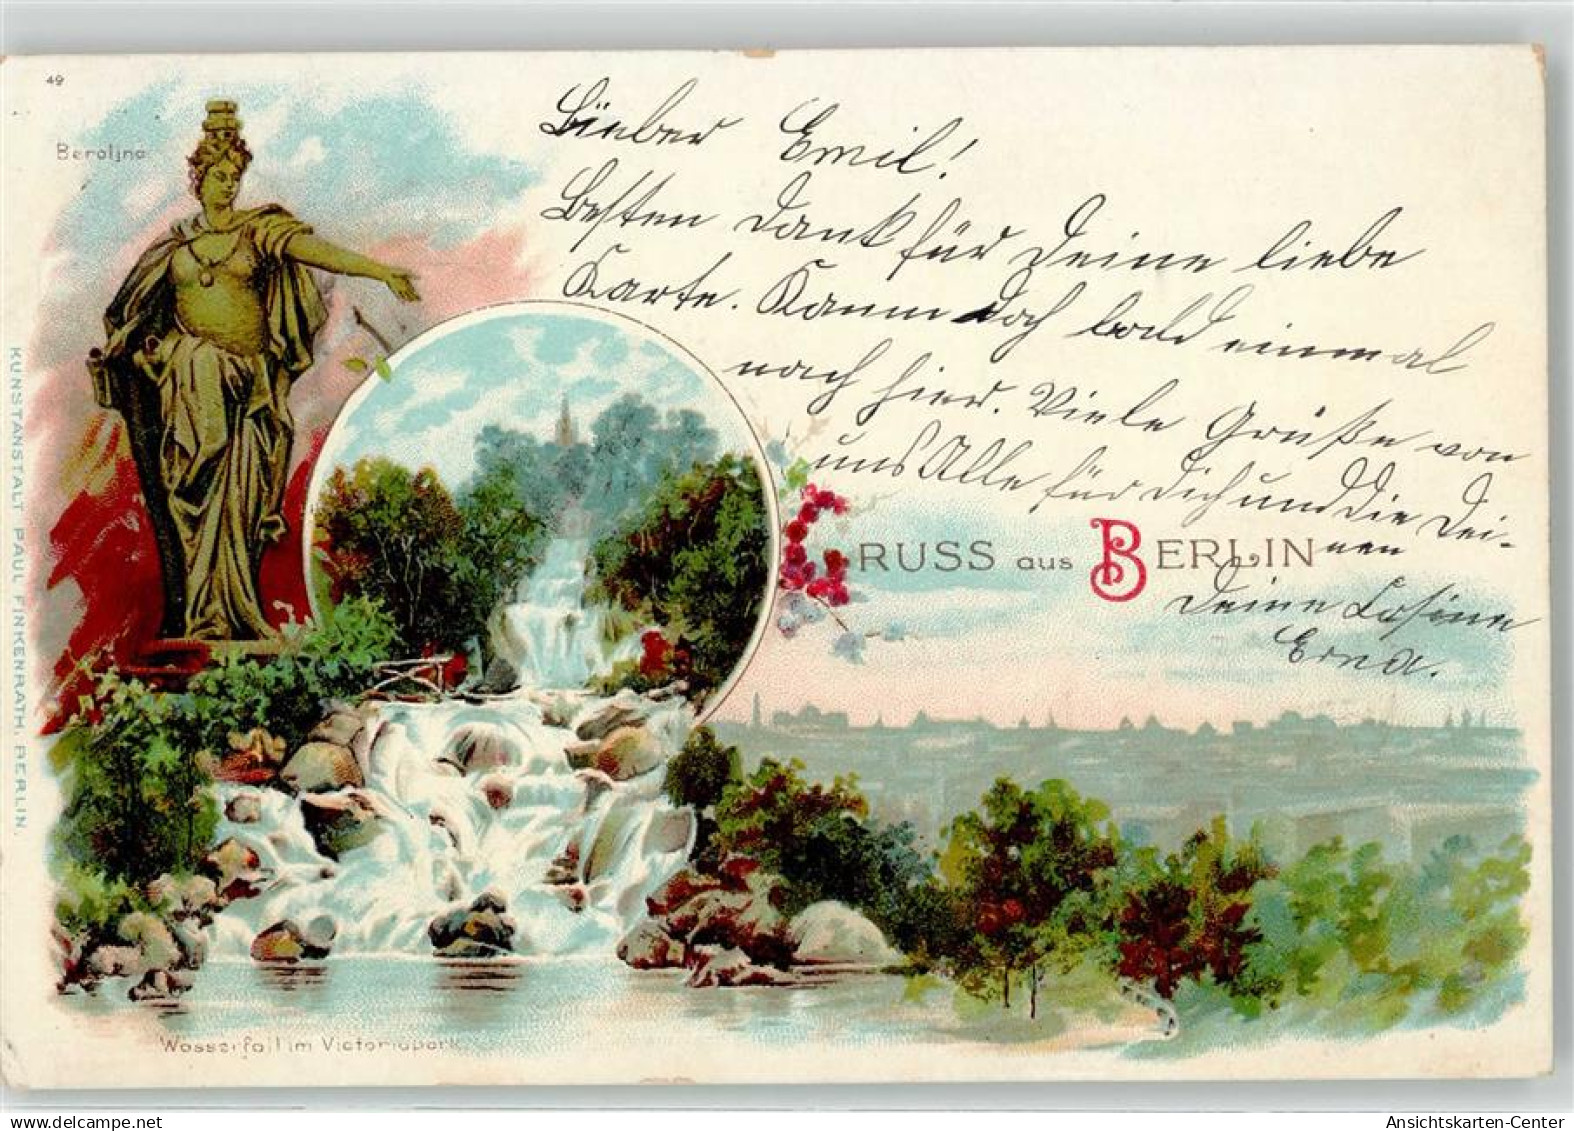 49
Berolina
Lieber Emil!
Besten Dank für Deine liebe
Karte. Komm doch bald einmal
nach hier. Viele Grüße von
uns Alle für Dich und die Dei-
nen
Deine Cosine
Erna.
GRUSS aus BERLIN
KUNSTANSTALT PAUL FINKENRATH, BERLIN.
Wasserfall im Victoriapark.
Ansichtskarten-Center